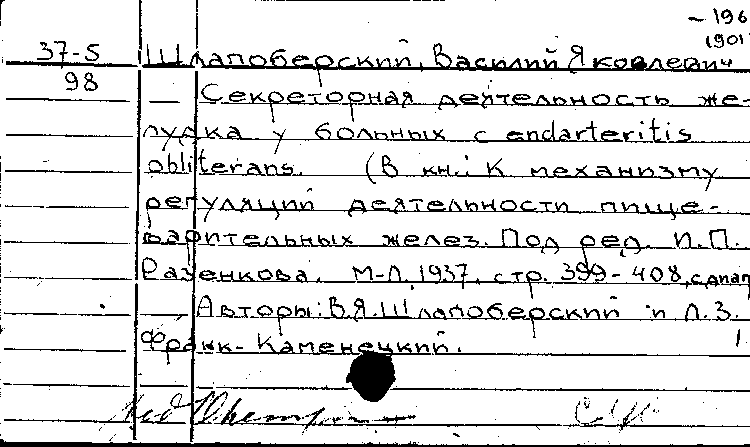 – 196
1901
37-5 Шлапоберский, Василий Яковлевич
98
— Секреторная деятельность же-
лудка у больных с endarteritis
obliterans. (В кн.: К механизму
регуляций деятельности пище-
варительных желез. Под ред. И.П.
Разенкова. М-Л. 1937, стр. 399-408, с диагр
— Авторы: В.Я. Шлапоберский и Л.З.
Франк-Каменецкий.